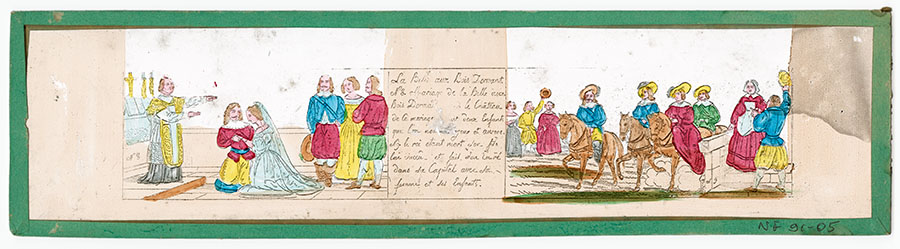 La Belle aux Bois Dormant
N° 8 Mariage de la Belle aux
Bois Dormant la Château
de ce mariage deux Enfants
que l'on et aurore
le roi étant mort son fils
lui et fait son entrée
dans sa Capitale avec sa
femme et ses Enfants.
N° 8
NF 91-05